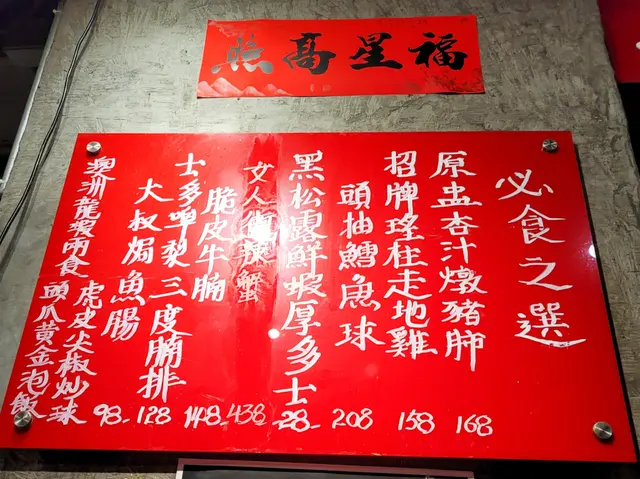 福星髙照
必食之選
原盅杏汁燉豬肺 168
招牌瑤柱走地雞 158
頭抽鱈魚球 208
黑松露鮮蝦厚多士 28-
女人街辣蟹 438
脆皮牛腩 148-
士多啤梨三度腩排 128
大叔焗魚腸 98-
澳洲龍蝦兩食
虎皮尖椒炒球
頭爪黃金泡飯